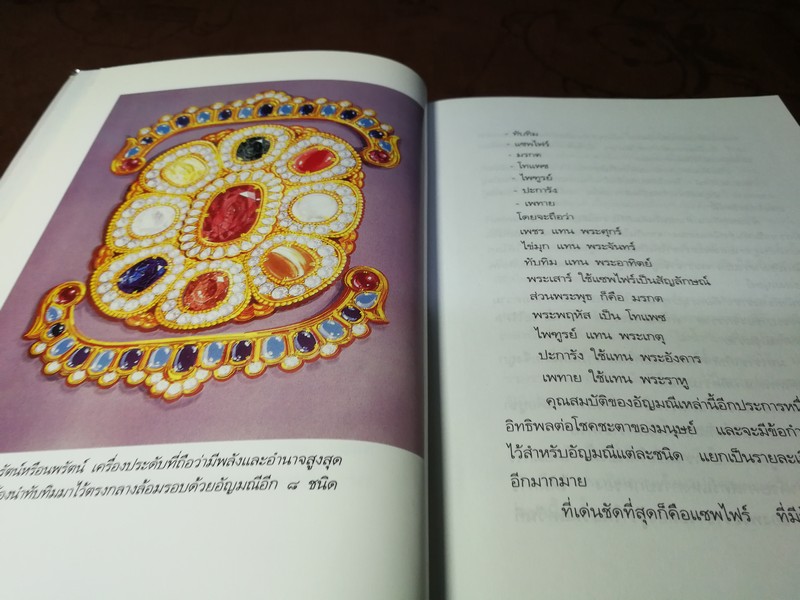 รัตน์หรือนพรัตน์ เครื่องประดับที่ถือว่ามีพลังและอำนาจสูงสุด
องนำทับทิมมาไว้ตรงกลางล้อมรอบด้วยอัญมณีอีก ๘ ชนิด
- ทับทิม
- แซพไฟร์
- มรกต
- โทแพซ
- ไพฑูรย์
- ปะการัง
- เพทาย
โดยจะถือว่า
เพชร แทน พระศุกร์
ไข่มุก แทน พระจันทร์
ทับทิม แทน พระอาทิตย์
พระเสาร์ ใช้แซพไฟร์เป็นสัญลักษณ์
ส่วนพระพุธ ก็คือ มรกต
พระพฤหัส เป็น โทแพซ
ไพฑูรย์ แทน พระเกตุ
ปะการัง ใช้แทน พระอังคาร
เพทาย ใช้แทน พระราหู
คุณสมบัติของอัญมณีเหล่านี้อีกประการหนึ่
อิทธิพลต่อโชคชะตาของมนุษย์ และจะมีข้อกำ
ไว้สำหรับอัญมณีแต่ละชนิด แยกเป็นรายละเอี
อีกมากมาย
ที่เด่นชัดที่สุดก็คือแซพไฟร์ ที่มี